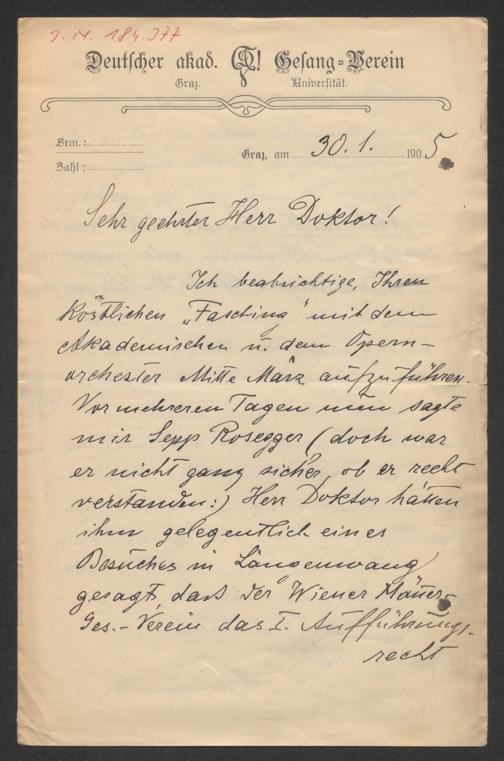 J. N. 184.377
Deutscher akad. Gesang-Verein
Graz. Universität.
Sem.:
Zahl:
Graz, am 30. 1. 1905
Sehr geehrter Herr Doktor!
Ich beabsichtige, Ihren
köstlichen „Fasching" mit dem
Akademischen u. dem Opern-
orchester Mitte März aufzuführen.
Vor mehreren Tagen nun sagte
mir Sepp Rosegger (doch war
er nicht ganz sicher, ob er recht
verstanden:) Herr Doktor hätten
ihm gelegentlich eines
Besuches in Langenwang
gesagt, dass der Wiener Mäner-
Ges.-Verein das I. Aufführungs-
recht